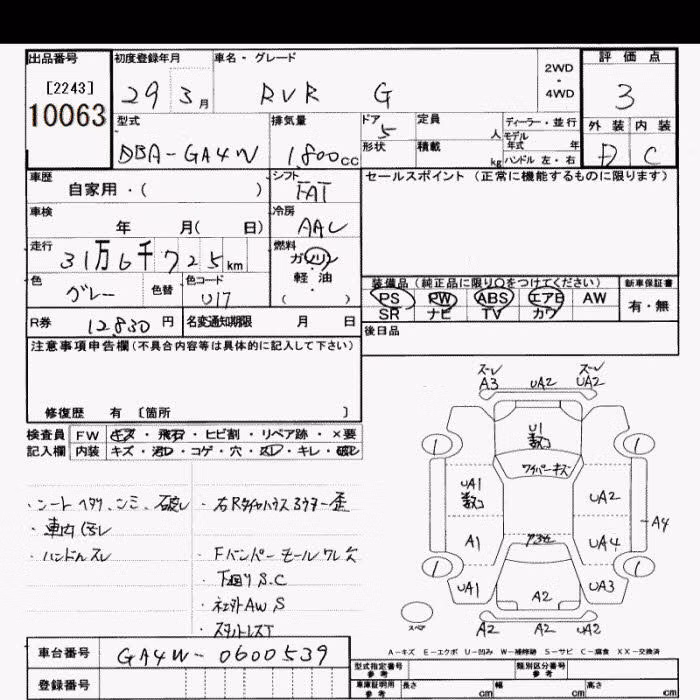 出品番号 初度登録年月 車名・グレード 2WD ・ 4WD 評価点
[2243]
10063 29 3月 RVR G 3
型式 排気量 ドア 定員 人 ディーラー・並行 外装 内装
DBA-GA4W 1,800cc 5 モデル年式 年 D C
形状 積載 kg ハンドル 左・右
車歴 自家用・( ) シフト FAT セールスポイント(正常に機能するものに限ります)
車検 年 月( 日) 冷房 AAC
走行 31万6千725km 燃料 ガソリン
軽・油
( ・ )
色 グレー 色替 色コード U17 装備品(純正品に限り○をつけてください) 新車保証書
PS PW ABS エアB AW 有・無
SR ナビ TV カワ
R券 12830円 名変通知期限 月 日 後日品
注意事項申告欄(不具合内容等は具体的に記入して下さい)
修復歴 有〔箇所 〕
検査員 FW キズ・飛石・ヒビ割・リペア跡・×要
記入欄 内装 キズ・汚レ・コゲ・穴・スレ・キレ・破レ
・シートヘタリ、シミ、破レ
・車内汚レ
・ハンドルスレ
・右Rタイヤハウスカラー歪
・Fバンパーモールワレ欠
・下廻りS.C
・社外AW S
スーレ スーレ
A3 UA2 UA2
1 U1 1
ワイパーキズ
UA1 UA2
A1 UA4 A4
1 1
UA1 A2 UA3
スペア A2 A2 UA2
A-キズ E-エクボ U-凹み W-補修跡 S-サビ C-腐食 XX-交換済
車台番号 GA4W-0600539
登録番号
型式指定番号 参考 類別区分番号 参考
車庫証明用 参考 長さ cm 幅 cm 高さ cm